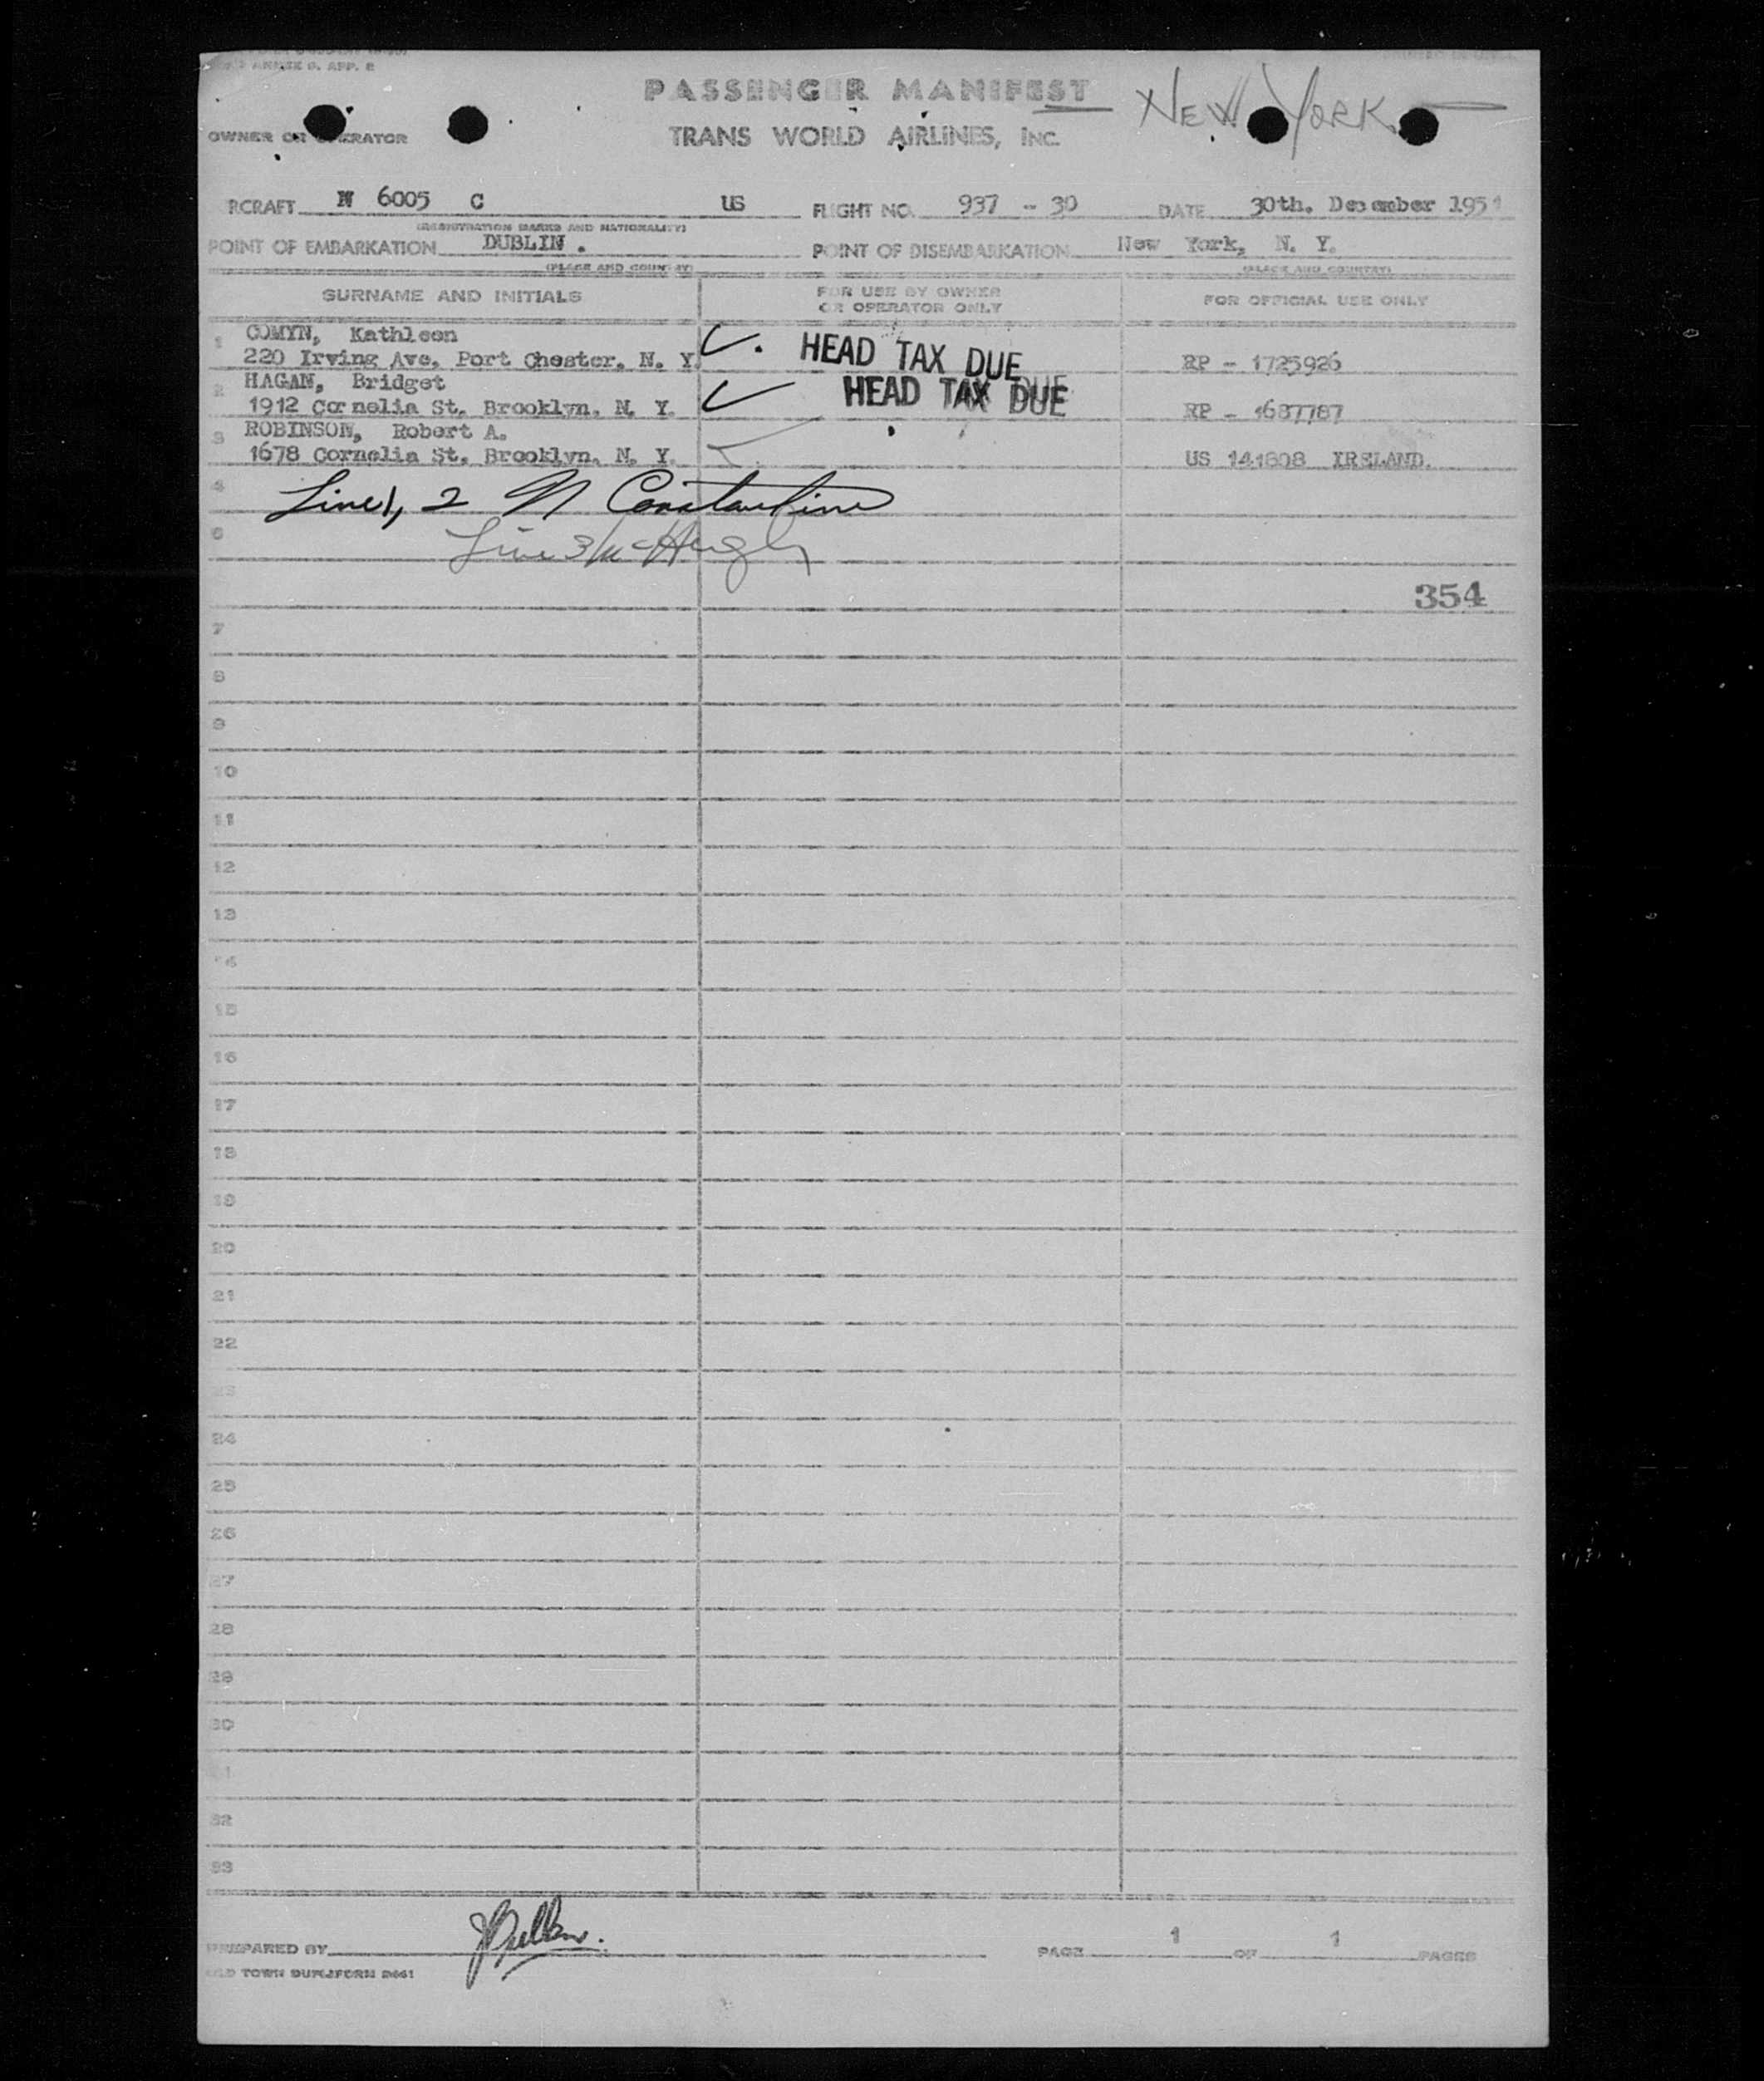 ANNEX 9. APP. 2
PASSENGER MANIFEST
NEW YORK
OWNER OR OPERATOR
TRANS WORLD AIRLINES, INC.
RCRAFT N 6005 C US FLIGHT NO. 937 - 30 DATE 30th. December 1951
(REGISTRATION MARKS AND NATIONALITY)
POINT OF EMBARKATION DUBLIN . POINT OF DISEMBARKATION New York, N. Y.
(PLACE AND COUNTRY) (PLACE AND COUNTRY)
SURNAME AND INITIALS FOR USE BY OWNER OR OPERATOR ONLY FOR OFFICIAL USE ONLY
1 COMYN, Kathleen
220 Irving Ave. Port Chester. N. Y. HEAD TAX DUE RP - 1725926
2 HAGAN, Bridget
1912 Cornelia St. Brooklyn. N. Y. HEAD TAX DUE RP - 1687787
3 ROBINSON, Robert A.
1678 Cornelia St. Brooklyn. N. Y. US 141808 IRELAND.
4 Line 1, 2 N Constantine
5 Line 3 McHugh
354
7
8
9
10
11
12
13
14
15
16
17
18
19
20
21
22
23
24
25
26
27
28
29
30
31
32
33
PREPARED BY PAGE 1 OF 1 PAGES
OLD TOWN DUPLIFORM 2461